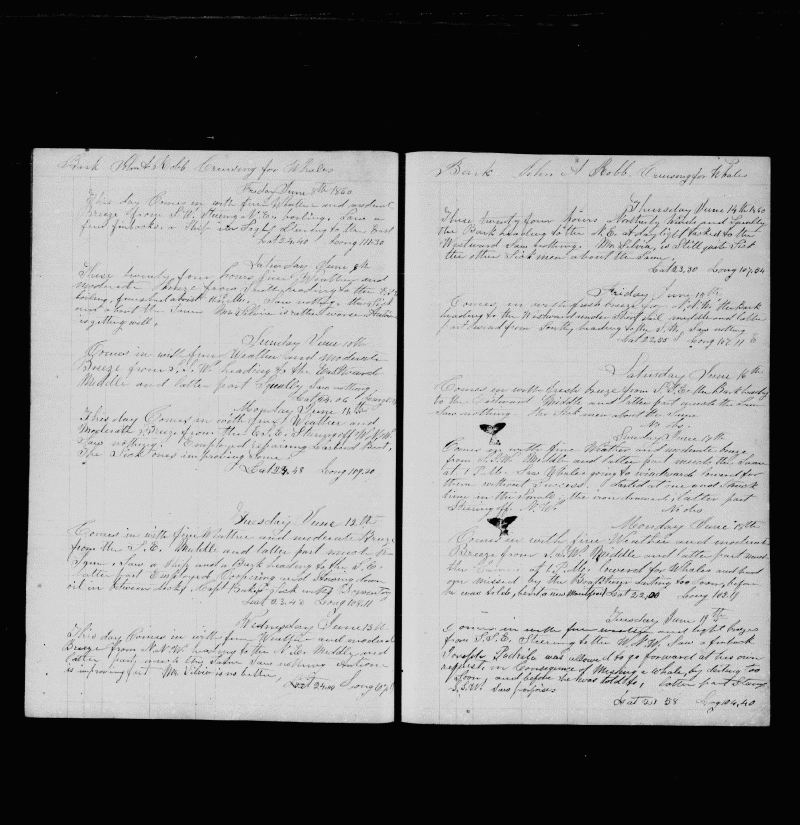 Bark John A Robb Cruising for Whales
Friday June 8th 1860
This day Comes in with fine Weather and moderate
Breeze from S.W. Steering N.E.
finbacks. a Ship in Sight During to the East
Lat 24.40 Long 111.30
Saturday June 9th
These twenty four hours fine Weather and
moderate breeze from South, heading to the
Saw nothing. the Sick
are about the Same Mr Silvia is rather worse
is getting well.
Sunday June 10th
Comes in with fine Weather and moderate
Breeze from S.S.W. heading to the Westward
Middle and latter part Squally Saw nothing
Lat 24.06
Monday June 11th
This day Comes in with fine Weather and
Moderate Breeze from the E.S.E. Steering off W.N.W.
Saw nothing. Employed repairing Larboard Boat,
The Sick ones improving Some.
Lat 23.48 Long 109.20
Tuesday June 12th
Comes in with fine Weather and moderate Breeze
from the S.E. Middle and latter part much the
Same, Saw a Ship and a Bark heading to the S.E.
latter part Employed Coopering and Stowing down
oil in fiveen casks, Capt Baker Sick with Dysentery
Lat 23.48 Long 108.11
Wednesday June 13th
This day Comes in with fine Weather and moderate
Breeze from N.N.W. heading to the N.E. Middle and
latter part much the Same Saw nothing Antone
is improving fast Mr Silvia is no better,
Lat 24.00 Long
Bark John A Robb Cruising for Whales
Thursday June 14th 1860
These twenty four hours Northerly Winds and Squally
the Bark heading to the N.E. At daylight tacked to the
Westward Saw nothing. Mr Silvia, is Still quite Sick
the other Sick men about the Same,
Lat 23.30 Long 107.54
Friday June 15th
Comes, in with fresh breeze from N.N.W. the Bark
heading to the Westward under Short Sail middle and latter
part wind from South, heading to the S.W. Saw nothing
Lat 22.35 Long 107.11
Saturday June 16th
Comes in with fresh breeze from S.S.E. the Bark heading
to the Eastward Middle and latter part much the Same
Saw nothing the Sick men about the Same
No Obs.
Sunday June 17th
Comes in with fine Weather and moderate breeze
from S.S.W. Middle and latter part much the Same
at 1 P.M. Saw Whales going to windward lowered for
them without Success. I darted at one and Struck
him in the Small, the iron drawed, latter part
Steering off N.W. No Obs
Monday June 18th
Comes in with fine Weather and moderate
Breeze from S.S.W. Middle and latter part much
the Same at 1 P.M. lowered for Whales and had
one missed by the Boatsteerer darting too Soon, before
he was told, Lat 22.00 Long 103.11
Tuesday June 19th
Comes in with fine weather and light breeze
from S.S.E. Steering to the W.N.W. Saw a finback
was allowed to go forward at his own
request, in Consequence of Missing a Whale, by darting too
Soon, and before he was told to, latter part Steering
S.S.W. Saw porpoises
Lat 21 58 Long 104.40